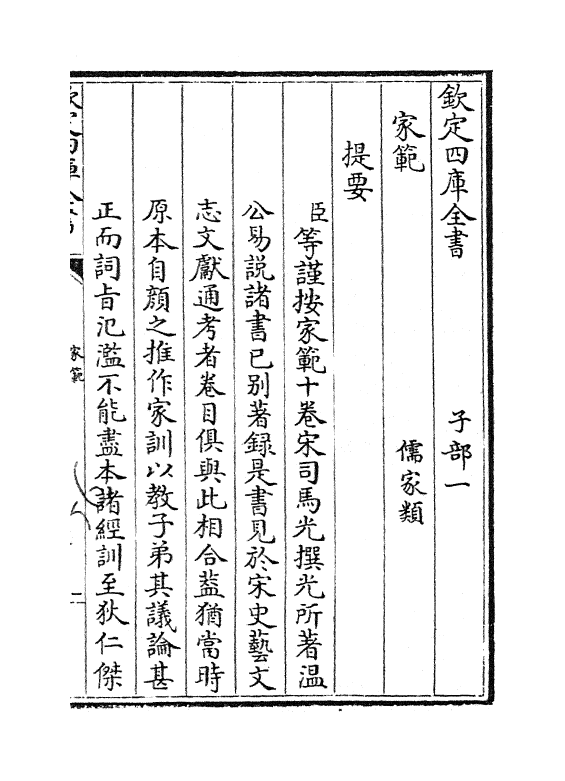 欽定四庫全書　子部一
家範　儒家類
提要
臣等謹按家範十卷宋司馬光撰光所著温
公易説諸書已别著録是書見於宋史藝文
志文獻通考者卷目俱與此相合葢猶當時
原本自顔之推作家訓以教子弟其議論甚
正而詞旨氾濫不能盡本諸經訓至狄仁傑
家範